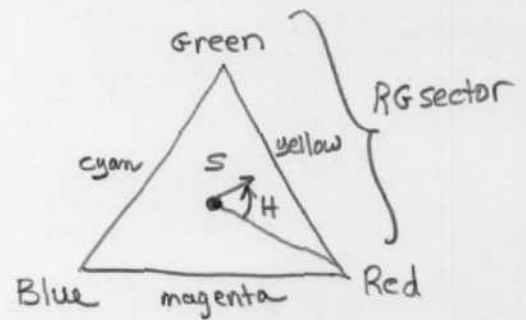 Green
RG sector
cyan
yellow
S
H
Blue
magenta
Red